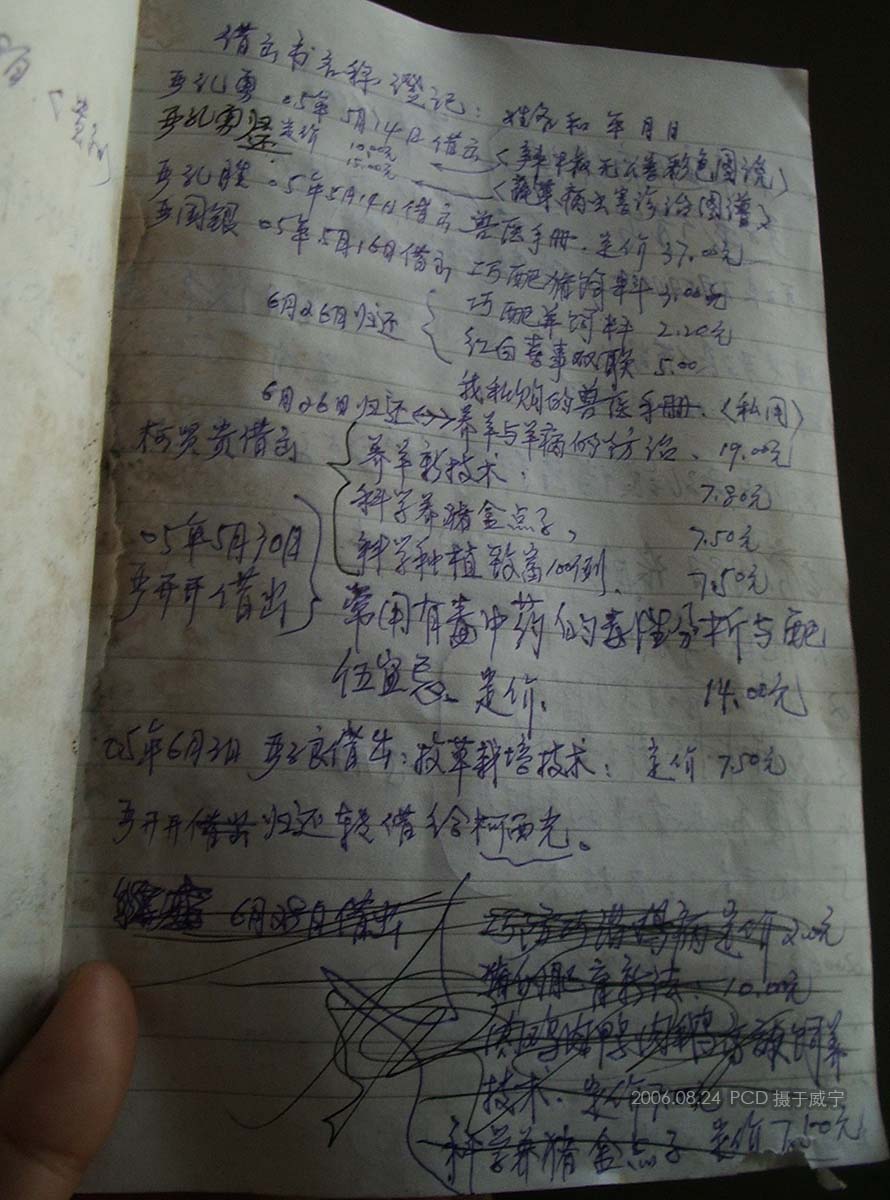 借出书名称登记：姓名和年月日
孔勇 05年5月14日借出《辣椒无公害彩色图说》
孔勇 还 定价 10.00元
15.00元 《蔬菜病虫害诊治图谱》
孔 05年5月14日借出 兽医手册. 定价 37.00元
国银 05年5月16日借出 巧配猪饲料 3.00元
巧配羊饲料 2.20元
6月26日归还 红白喜事对联 5.00
我私购的兽医手册.〈私用〉
6月26日归还 养羊与羊病的防治、19.00元
柯贤贵借出 养羊新技术. 7.80元
科学养猪金点子, 7.50元
05年5月30日 科学种植致富100例. 7.50元
开开借出 常用有毒中药的毒性分析与配
伍宜忌. 定价. 14.00元
05年6月3日 良借出：牧草栽培技术： 定价 7.50元
开开借出归还转借给柯西光。
6月28日借出 巧防巧治猪病定价2.00元
育新法. 10.00元
饲养
技术. 定价
科学养猪金点子 定价7.50元
2006.08.24 PCD 摄于威宁